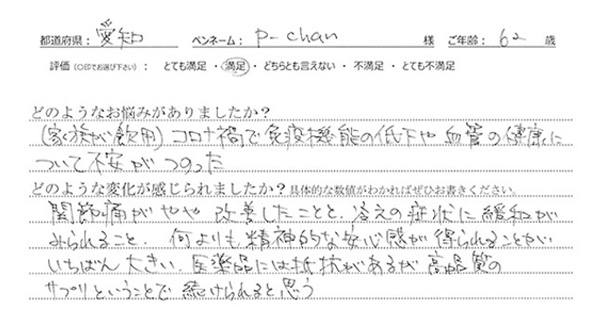 都道府県： 愛知 ペンネーム： P-chan 様 ご年齢： 62 歳
評価（○印でお選び下さい）： とても満足 ・ 満足 ・ どちらとも言えない ・ 不満足 ・ とても不満足
どのようなお悩みがありましたか？
(家族が飲用) コロナ禍で免疫機能の低下や血管の健康に
ついて不安がつのった
どのような変化が感じられましたか？具体的な数値がわかればぜひお書きください。
関節痛がやや改善したことと、冷えの症状に緩和が
みられること。何よりも精神的な安心感が得られることがい
いちばん大きい。医薬品には抵抗があるが高品質の
サプリということで続けられると思う